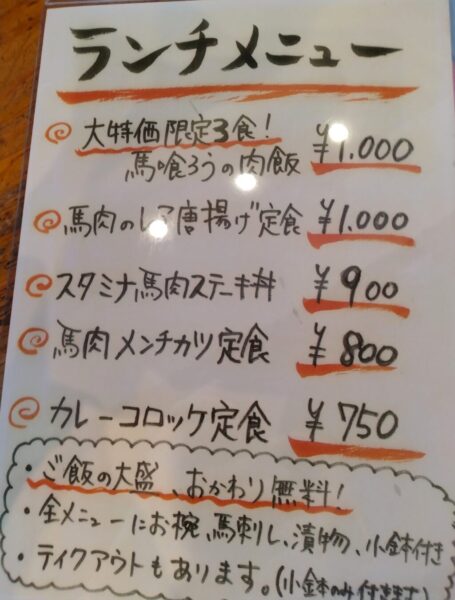 ランチメニュー
大特価限定3食！
馬喰ろうの肉飯 ¥1.000
馬肉のレア唐揚げ定食 ¥1.000
スタミナ馬肉ステーキ丼 ¥900
馬肉メンチカツ定食 ¥800
カレーコロッケ定食 ¥750
・ご飯の大盛、おかわり無料！
・全メニューにお椀、馬刺し、漬物、小鉢付き
・テイクアウトもあります。(小鉢のみ付きます)